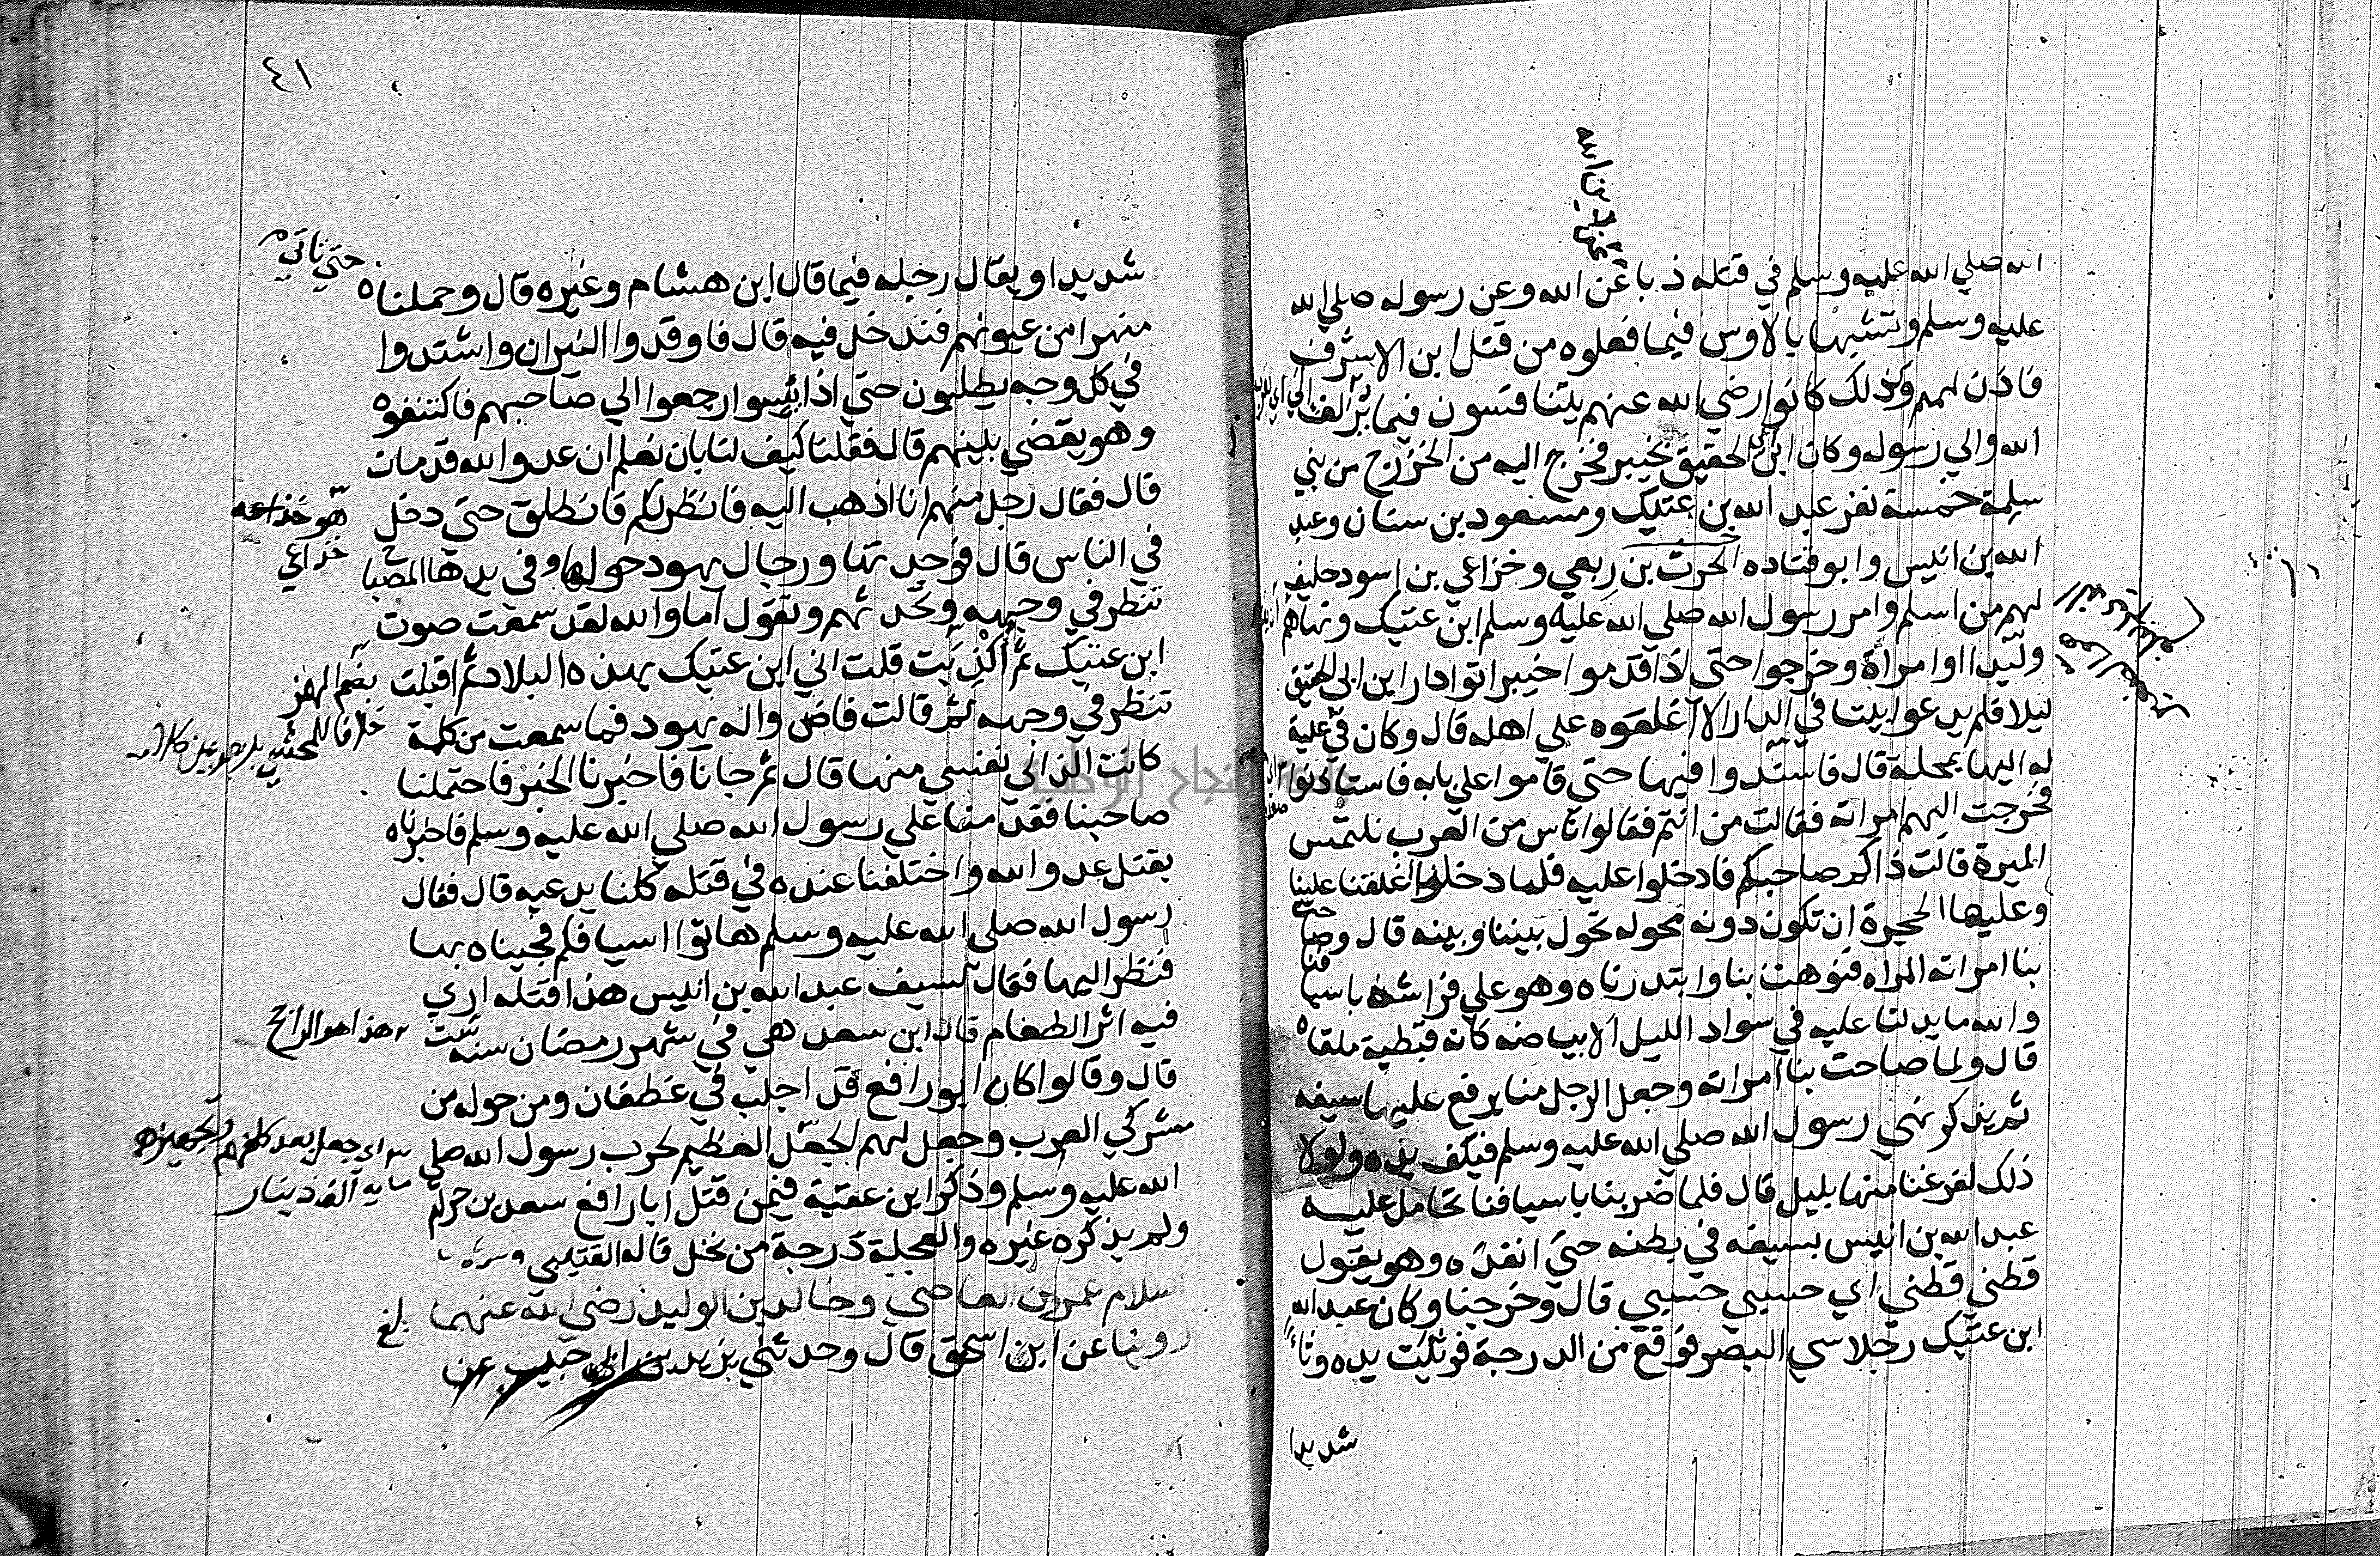 الله صلي الله عليه وسلم في قتله ذبا عن الله وعن رسوله صلي الله
عليه وسلم وتشبها بالاوس فيما فعلوه من قتل ابن الاشرف
فاذن لهم وكذلك كانوا رضي الله عنهم يتنافسون فيما يزلف
الله والي رسوله وكان ابن ابي الحقيق بخيبر فخرج اليه من الخزرج من بني
سلمة خمسة نفر عبد الله بن عتيك ومسعود بن سنان وعبد
الله بن انيس وابو قتاده الحرث بن ربعي وخزاعي بن اسود حليف
لهم من اسلم وامر رسول الله صلي الله عليه وسلم ابن عتيك ونهاهم
وليدا او امراة وخرجوا حتي اذا قدموا خيبر اتوا دار ابن ابي الحقيق
ليلا فلم يدعوا بيتا في الدار الا اغلقوه علي اهله قال وكان في علية
له اليها بمحلة قال فاستدوا فيها حتي قاموا علي بابه فاستاذنوا
فخرجت اليهم امراته فقالت من انتم فقالوا اناس من العرب نلتمس
الميرة قالت ذاكم صاحبكم فادخلوا عليه فلما دخلنا اغلقنا علينا
وعليها الحجرة ان تكون دونه محوله تحول بيننا وبينه قال وصاحت
بنا امراته المراه فنوهت بنا وابتدرناه وهو علي فراشه باسيافنا
والله ما يدلنا عليه في سواد الليل الا بياضه كانه قبطية ملقاه
قال ولما صاحت بنا امراته وجعل الرجل منا يرفع عليها سيفه
ثم يذكر نهي رسول الله صلي الله عليه وسلم فيكف يده ولولا
ذلك لفرغنا منها بليل قال فلما ضربنا باسيافنا تحامل عليه
عبد الله بن انيس بسيفه في بطنه حتي انفذه وهو يقول
قطني قطني اي حسبي حسبي قال وخرجنا وكان عبد الله
ابن عتيك رجلا سي البصر فوقع من الدرجة فوثئت يده وثا
شديدا
٤١
شديدا ويقال رجله فيما قال ابن هشام وغيره قال وحملناه
حتي ناتي
منهرا من عيونهم فندخل فيه قال فاوقدوا النيران واشتدوا
في كل وجه يطلبون حتي اذا ائيسوا رجعوا الي صاحبهم فاكتنفوه
وهو يقضي بينهم قال فقلنا كيف لنا بان نعلم ان عدو الله قد مات
قال فقال رجل منهم انا اذهب اليه فانظر لكم فانطلق حتي دخل
هو خزاعه
خزاعي
في الناس قال فوجدتها ورجال يهود حوله وفي يدها المصباح
تنظر في وجهه وتحدثهم وتقول اما والله لقد سمعت صوت
ابن عتيك ثم اكذبت قلت اني ابن عتيك بهذه البلاد ثم اقبلت
بضم الهمز
تنظر في وجهه ثم قالت فاض واله يهود فما سمعت من كلمة
كانت الذ الي نفسي منها قال ثم جانا فاخبرنا الخبر فاحتملنا
صاحبنا فقدمنا علي رسول الله صلي الله عليه وسلم فاخبرناه
بقتل عدو الله واختلفنا عنده في قتله كلنا يدعيه قال فقال
رسول الله صلي الله عليه وسلم هاتوا اسيافكم فجيناه بها
فنظر اليها فقال لسيف عبد الله بن انيس هذا قتله اري
فيه اثر الطعام قال ابن سعد هي في شهر رمضان سنه ست
هذا هو الراجح
قال وقالوا كان ابو رافع قد اجلب في غطفان ومن حوله من
مشركي العرب وجعل لهم الجعل العظيم لحرب رسول الله صلي
اي جعل بعد كلفهم وتجهيزه
ماية الف دينار
الله عليه وسلم وذكر ابن عقبة فيمن قتل ابا رافع سعد بن حرام
ولم يذكره غيره والعجلة درجة من نخل قاله القتيبي
اسلام عمرو بن العاصي وخالد بن الوليد رضي الله عنهما
بلغ
روينا عن ابن اسحق قال وحدثني يزيد بن ابي حبيب عن